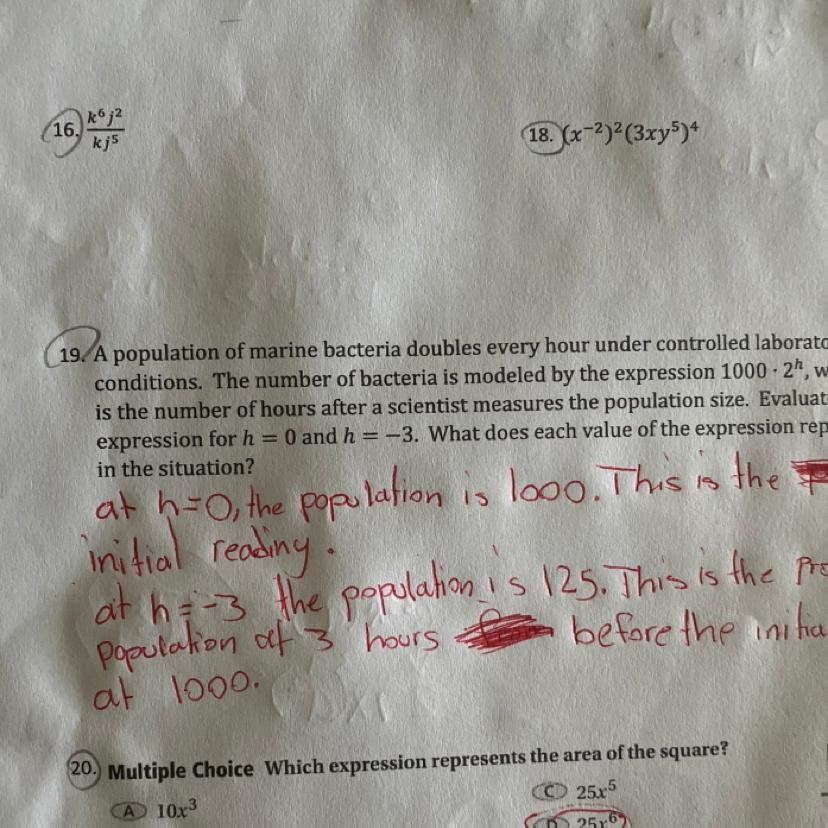 16. k⁶j²/kj⁵
18. (x⁻²)²(3xy⁵)⁴
19. A population of marine bacteria doubles every hour under controlled laborato
conditions. The number of bacteria is modeled by the expression 1000 · 2ʰ, w
is the number of hours after a scientist measures the population size. Evaluat
expression for h = 0 and h = −3. What does each value of the expression rep
in the situation?
at h=0, the population is 1000. This is the
initial reading.
at h=-3 the population is 125. This is the pro
population at 3 hours before the initia
at 1000.
20. Multiple Choice Which expression represents the area of the square?
A 10x³
C 25x⁵
D 25x⁶